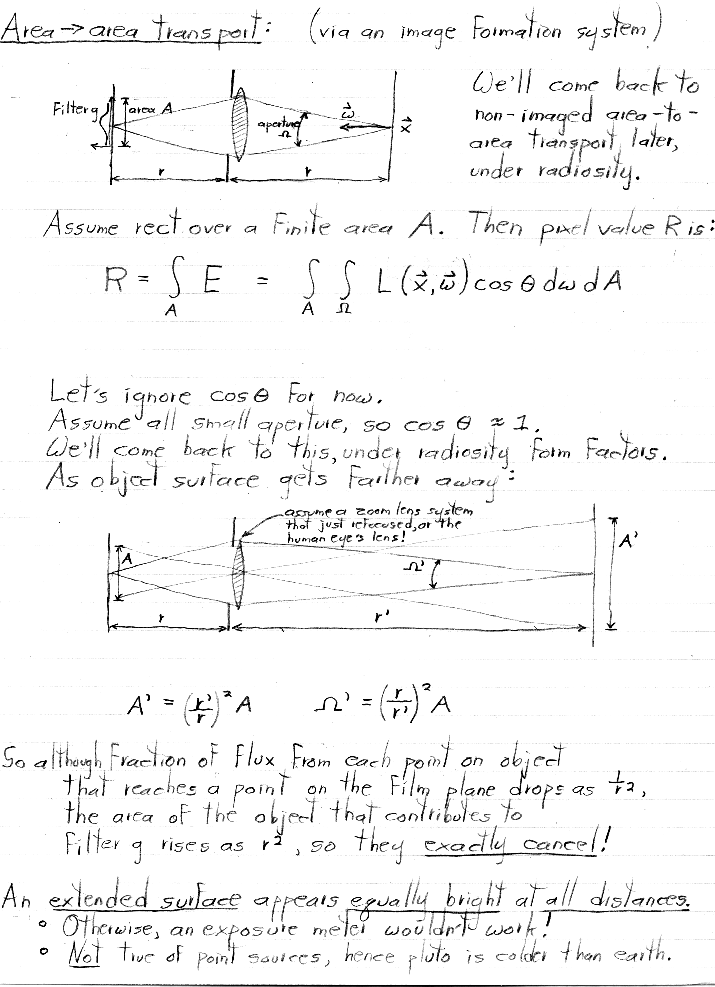 Area → area transport: (via an image formation system)
We'll come back to
non-imaged area-to-
area transport later,
under radiosity.
Filter g
area A
aperture
Ω
ω⃗
x⃗
r
r
Assume rect over a finite area A. Then pixel value R is:
R = ∫_A E = ∫_A ∫_Ω L(x⃗,ω⃗) cos θ dω dA
Let's ignore cos θ for now.
Assume all small aperture, so cos θ ≈ 1.
We'll come back to this, under radiosity form factors.
As object surface gets farther away:
assume a zoom lens system
that just refocused, or the
human eye's lens!
A
Ω'
A'
r
r'
A' = (r'/r)² A Ω' = (r/r')² A
So although fraction of flux from each point on object
that reaches a point on the film plane drops as 1/r²,
the area of the object that contributes to
filter g rises as r², so they exactly cancel!
An extended surface appears equally bright at all distances.
° Otherwise, an exposure meter wouldn't work!
° Not true of point sources, hence pluto is colder than earth.